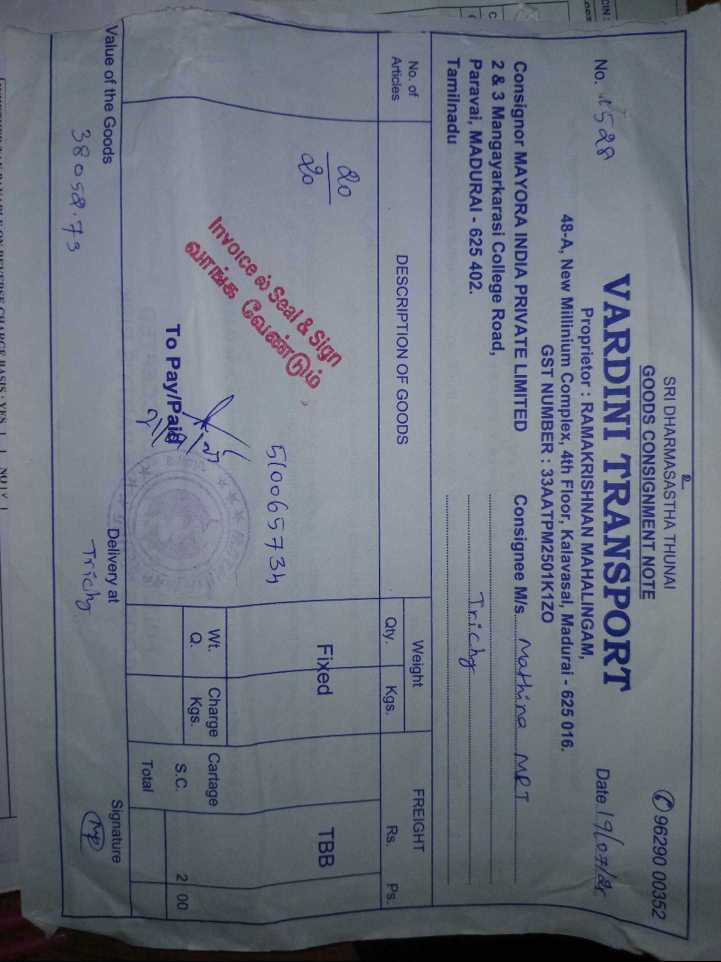 SRI DHARMASASTHA THUNAI
GOODS CONSIGNMENT NOTE
96290 00352
VARDINI TRANSPORT
Proprietor : RAMAKRISHNAN MAHALINGAM,
48-A, New Millinium Complex, 4th Floor, Kalavasal, Madurai - 625 016.
GST NUMBER : 33AATPM2501K1ZO
No. 1528
Date 19/07/
Consignor MAYORA INDIA PRIVATE LIMITED
2 & 3 Mangayarkarasi College Road,
Paravai, MADURAI - 625 402.
Tamilnadu
Consignee M/s. Mathina MRT
Trichy
No. of Articles
DESCRIPTION OF GOODS
Weight
Qty. Kgs.
FREIGHT
Rs. Ps.
20
20
Invoice ல் Seal & Sign
வாங்க வேண்டும்
510065734
Fixed
TBB
To Pay/Paid
Wt. Q.
Charge Kgs.
Cartage
S.C. 2 00
Total
Value of the Goods
38058.73
Delivery at
Trichy
Signature